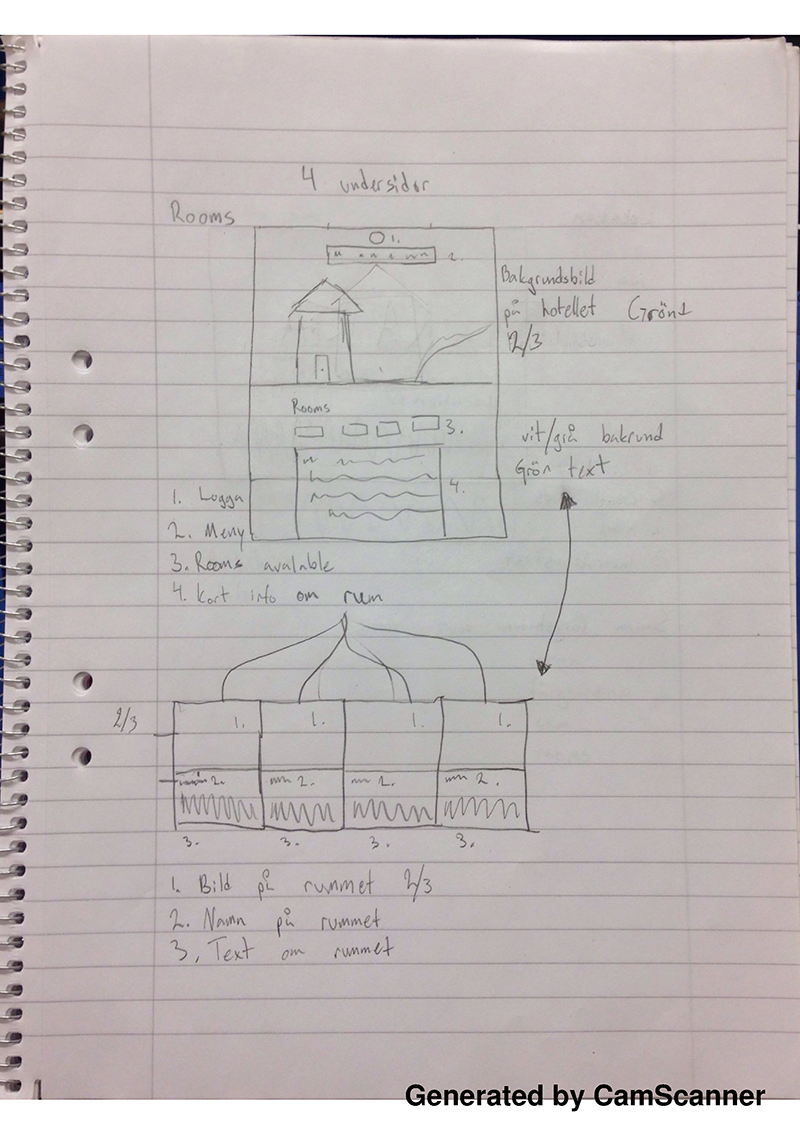 4 undersidor
Rooms
1.
2.
Bakgrundsbild
på hotellet Grönt
2/3
Rooms
3.
vit/grå bakrund
Grön text
4.
1. Logga
2. Meny
3. Rooms avalable
4. Kort info om rum
2/3
1. 1. 1. 1.
2. 2. 2. 2.
3. 3. 3. 3.
1. Bild på rummet 2/3
2. Namn på rummet
3. Text om rummet
Generated by CamScanner